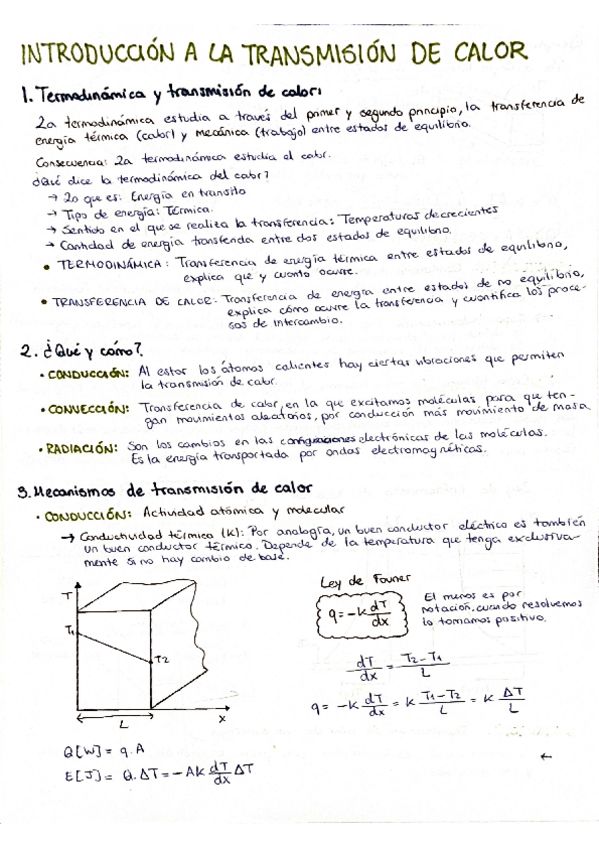 INTRODUCCIÓN A LA TRANSMISIÓN DE CALOR
1. Termodinámica y transmisión de calor:
La termodinámica estudia a través del primer y segundo principio, la transferencia de
energía térmica (calor) y mecánica (trabajo) entre estados de equilibrio.
Consecuencia: La termodinámica estudia el calor.
¿Qué dice la termodinámica del calor?
→ Lo que es: Energía en transito
→ Tipo de energía: Térmica.
→ Sentido en el que se realiza la transferencia: Temperaturas decrecientes
→ Cantidad de energía transferida entre dos estados de equilibrio.
• TERMODINÁMICA: Transferencia de energía térmica entre estados de equilibrio,
explica qué y cuanto ocurre.
• TRANSFERENCIA DE CALOR: Transferencia de energia entre estados de no equilibrio,
explica cómo ocurre la transferencia y cuantifica los proce-
sos de intercambio.
2. ¿Qué y cómo?
• CONDUCCIÓN: Al estar los átomos calientes hay ciertas vibraciones que permiten
la transmisión de calor.
• CONVECCIÓN: Transferencia de calor, en la que excitamos moléculas para que ten-
gan movimientos aleatorios, por conducción más movimiento de masa
• RADIACIÓN: Son los cambios en las configuraciones electrónicas de las moléculas.
Es la energía transportada por ondas electromagnéticas.
3. Mecanismos de transmisión de calor
• CONDUCCIÓN: Actividad atómica y molecular
→ Conductividad térmica (K): Por analogía, un buen conductor eléctrico es también
un buen conductor térmico. Depende de la temperatura que tenga exclusiva-
mente si no hay cambio de base.
Ley de Fourier
T
T1
T2
L
x
q = -k dT/dx
El menos es por
notación, cuando resolvemos
lo tomamos positivo.
dT/dx = T2-T1/L
q = -k dT/dx = k T1-T2/L = k ΔT/L
Q[W] = q.A
E[J] = Q.ΔT = -Ak dT/dx ΔT
←